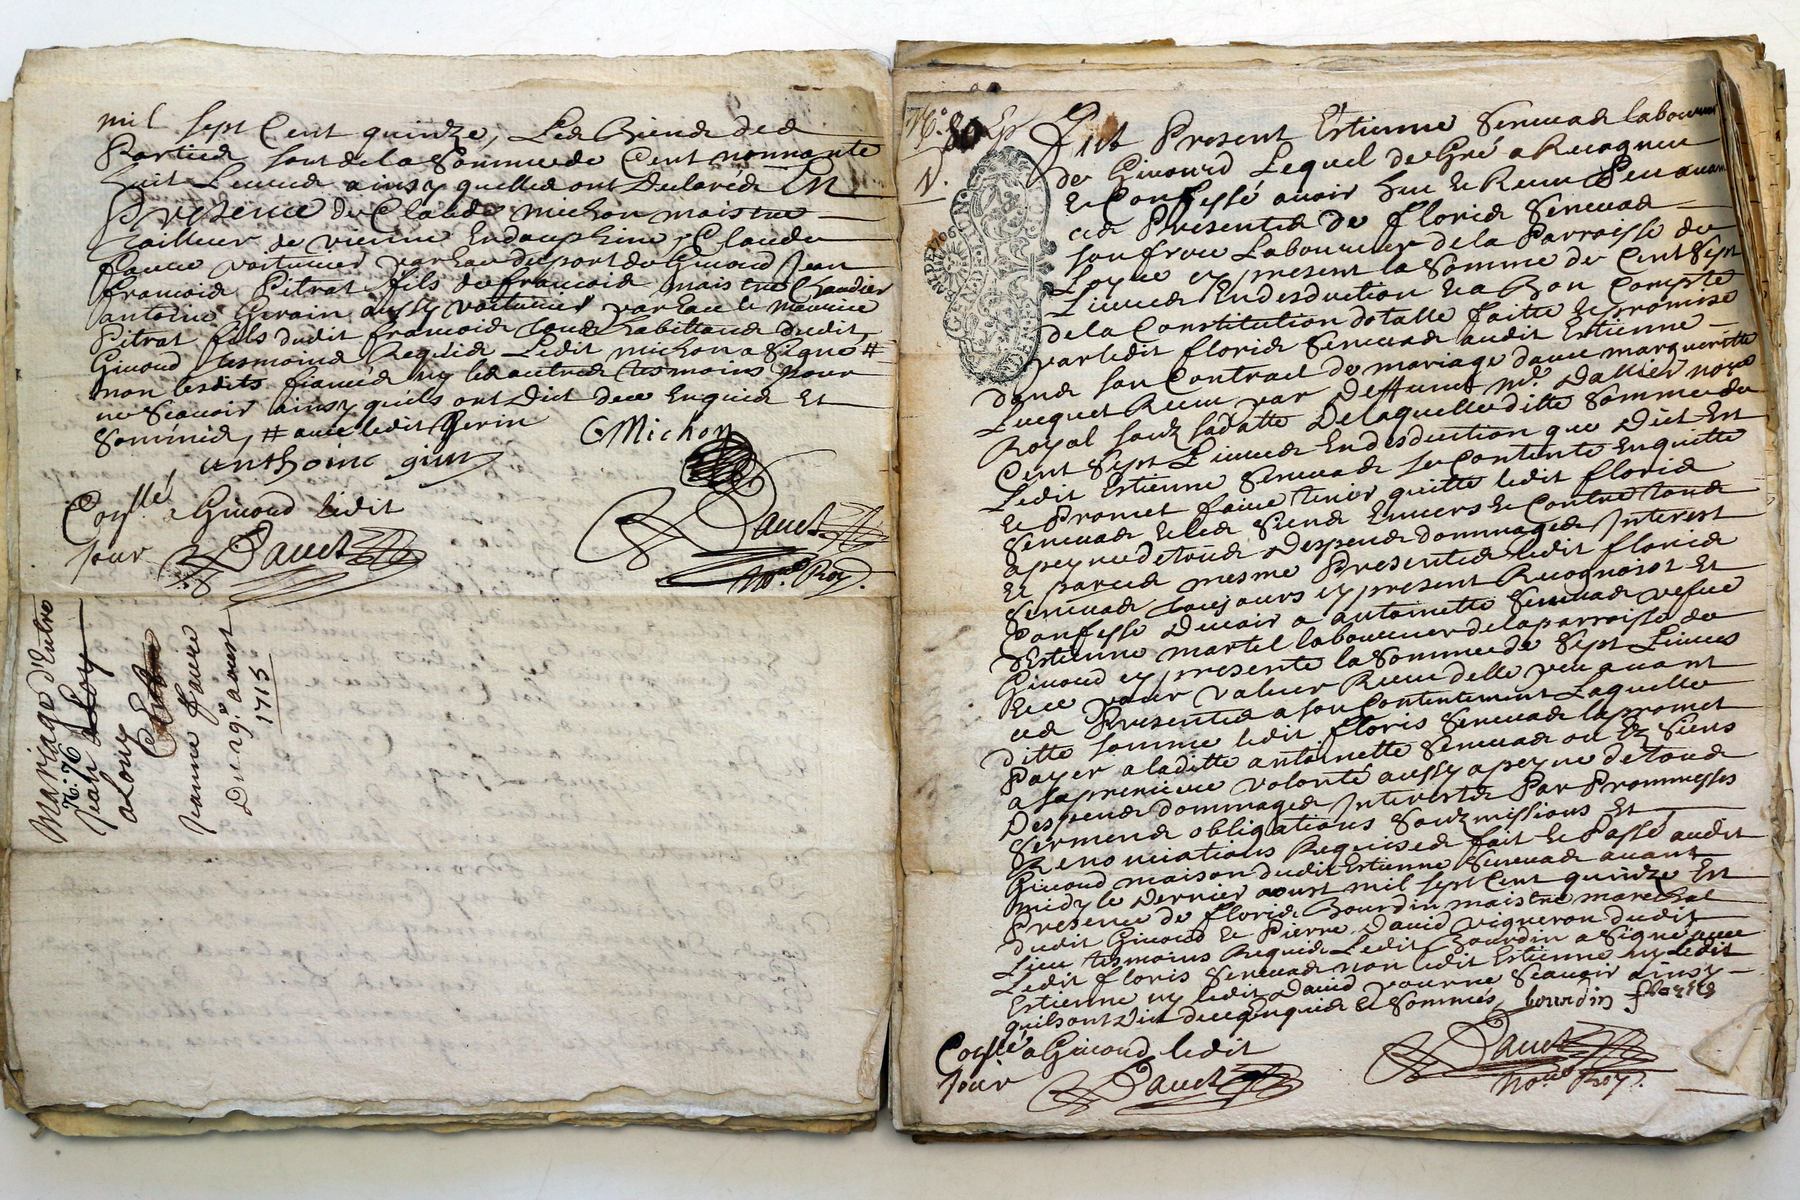 mil sept Cent quinze, Les Biens des
Parties sont de la Somme de Cent nonnante
huit Livres ainsy quelles ont Declarés En
Presence de Claude Michon maistre
Tailleur de vienne En dauphine, Claude
faure voiturier par Eau du port de Givord Jean
francois Pitrat fils de francois maistre
antoine Gerin aussy voiturier par Eau le maurice
Pitrat fils dudit francois tous habittans dudit
Givord tesmoins Requis Ledit michon a Signé #
non lesdits fiancés ny les autres tesmoins pour
ne Scavoir ainsy quils ont Dict de ce Enquis Et
Sommés, # avec ledit Gerin CMichon
anthoine girin
Coyllé a Givord ledit
jour Dauet
Dauet
No.re Roy.
Mariage d'Entre
N. 76
Jean
a Loire
Jeanne Faure
Du 19.e aoust
1715
N.o 80
Fut Present Estienne Servuas laboureur
de Givord Lequel de Gré a Recogneu
Et Confessé avoir heu Et Receu Peu avant
ces Presentes de Floris Servuas
son frere Laboureur de la Parroisse de
Loyre cy present la Somme de Cent Sept
Livres En desduction Et a Bon Compte
de la Constitution dotalle faitte Et promise
par ledit floris Servuas audit Estienne
dans son Contract de mariage avec margueritte
Lucquet Receu par Deffunct m.e Dallier no.re
Royal soubz sa datte De laquelle ditte Somme de
Cent Sept Livres En desduction que Dict Est
Ledit Estienne Servuas se Contente En quitte
Et Promet faire tenir quitte ledit floris
Servuas Et les Siens Envers Et Contre tous
a peyne de tous Despens dommages Interest
Et par ces mesme Presentes ledit floris
Servuas tousjours cy present Recognoist Et
Confesse Devoir a antoinette Servuas vefue
d'Estienne martel laboureur de la parroisse de
Givord cy presente la Somme de Sept Livres
pour valeur Receu delle peu avant
ces Presentes a son Contentement Laquelle
ditte somme ledit floris Servuas la promet
Payer a laditte antoinette Servuas ou Ez Siens
a sa premiere volonté aussy a peyne de tous
Despens dommages Interests Par Prommesses
Sermens obligations Soubzmissions Et
Renonciations Requises fait Et Passé audit
Givord maison dudit Estienne Servuas avant
midy le dernier aoust mil sept Cent quinze En
Presence de floris Bourdin maistre mareschal
dudit Givord Et Pierre David vigneron dudit
Lieu tesmoins Requis Ledit Bourdin a Signé avec
Ledit floris Servuas non ledit Estienne ny ledit
Estienne ny ledit David pour ne Scavoir ainsy
quils ont Dit de ce Enquis Et Sommés, bourdin
Coyllé a Givord ledit
jour Dauet
Dauet
No.re Roy.